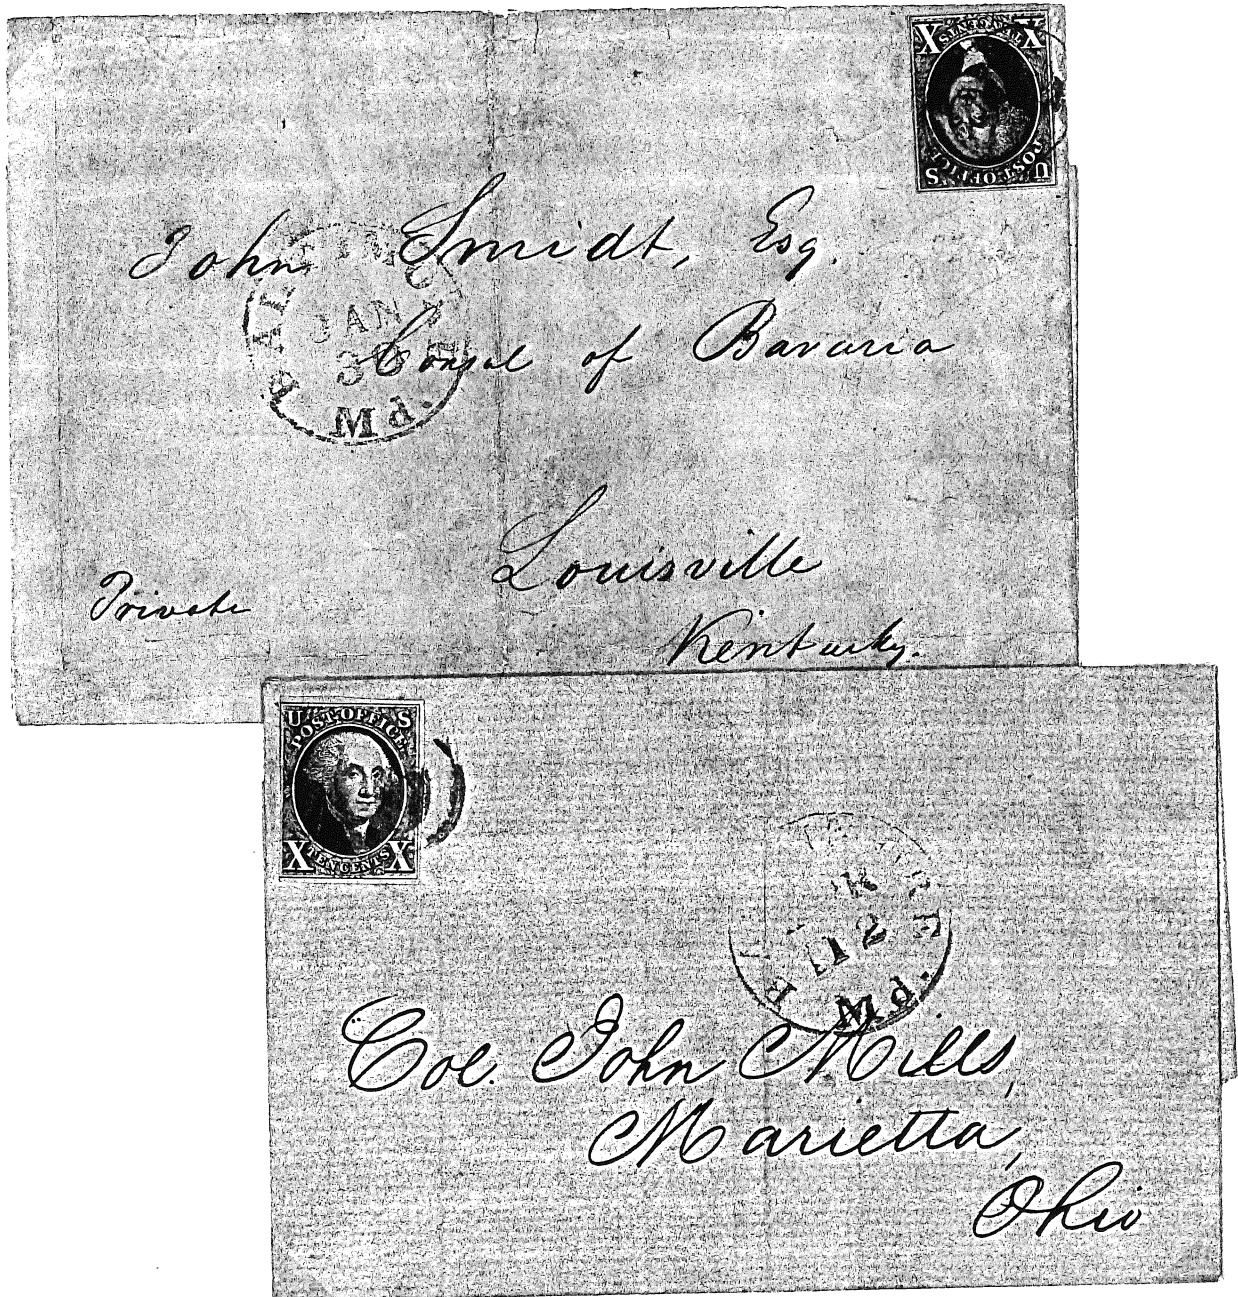 X CENTS X
U POST OFFICE S
John Smidt, Esq.
Consul of Bavaria
BALTIMORE
JAN
30
Md.
Louisville
Private
Kentucky.
U POST OFFICE S
X TEN CENTS X
12
Md.
Col. John Mills,
Marietta,
Ohio